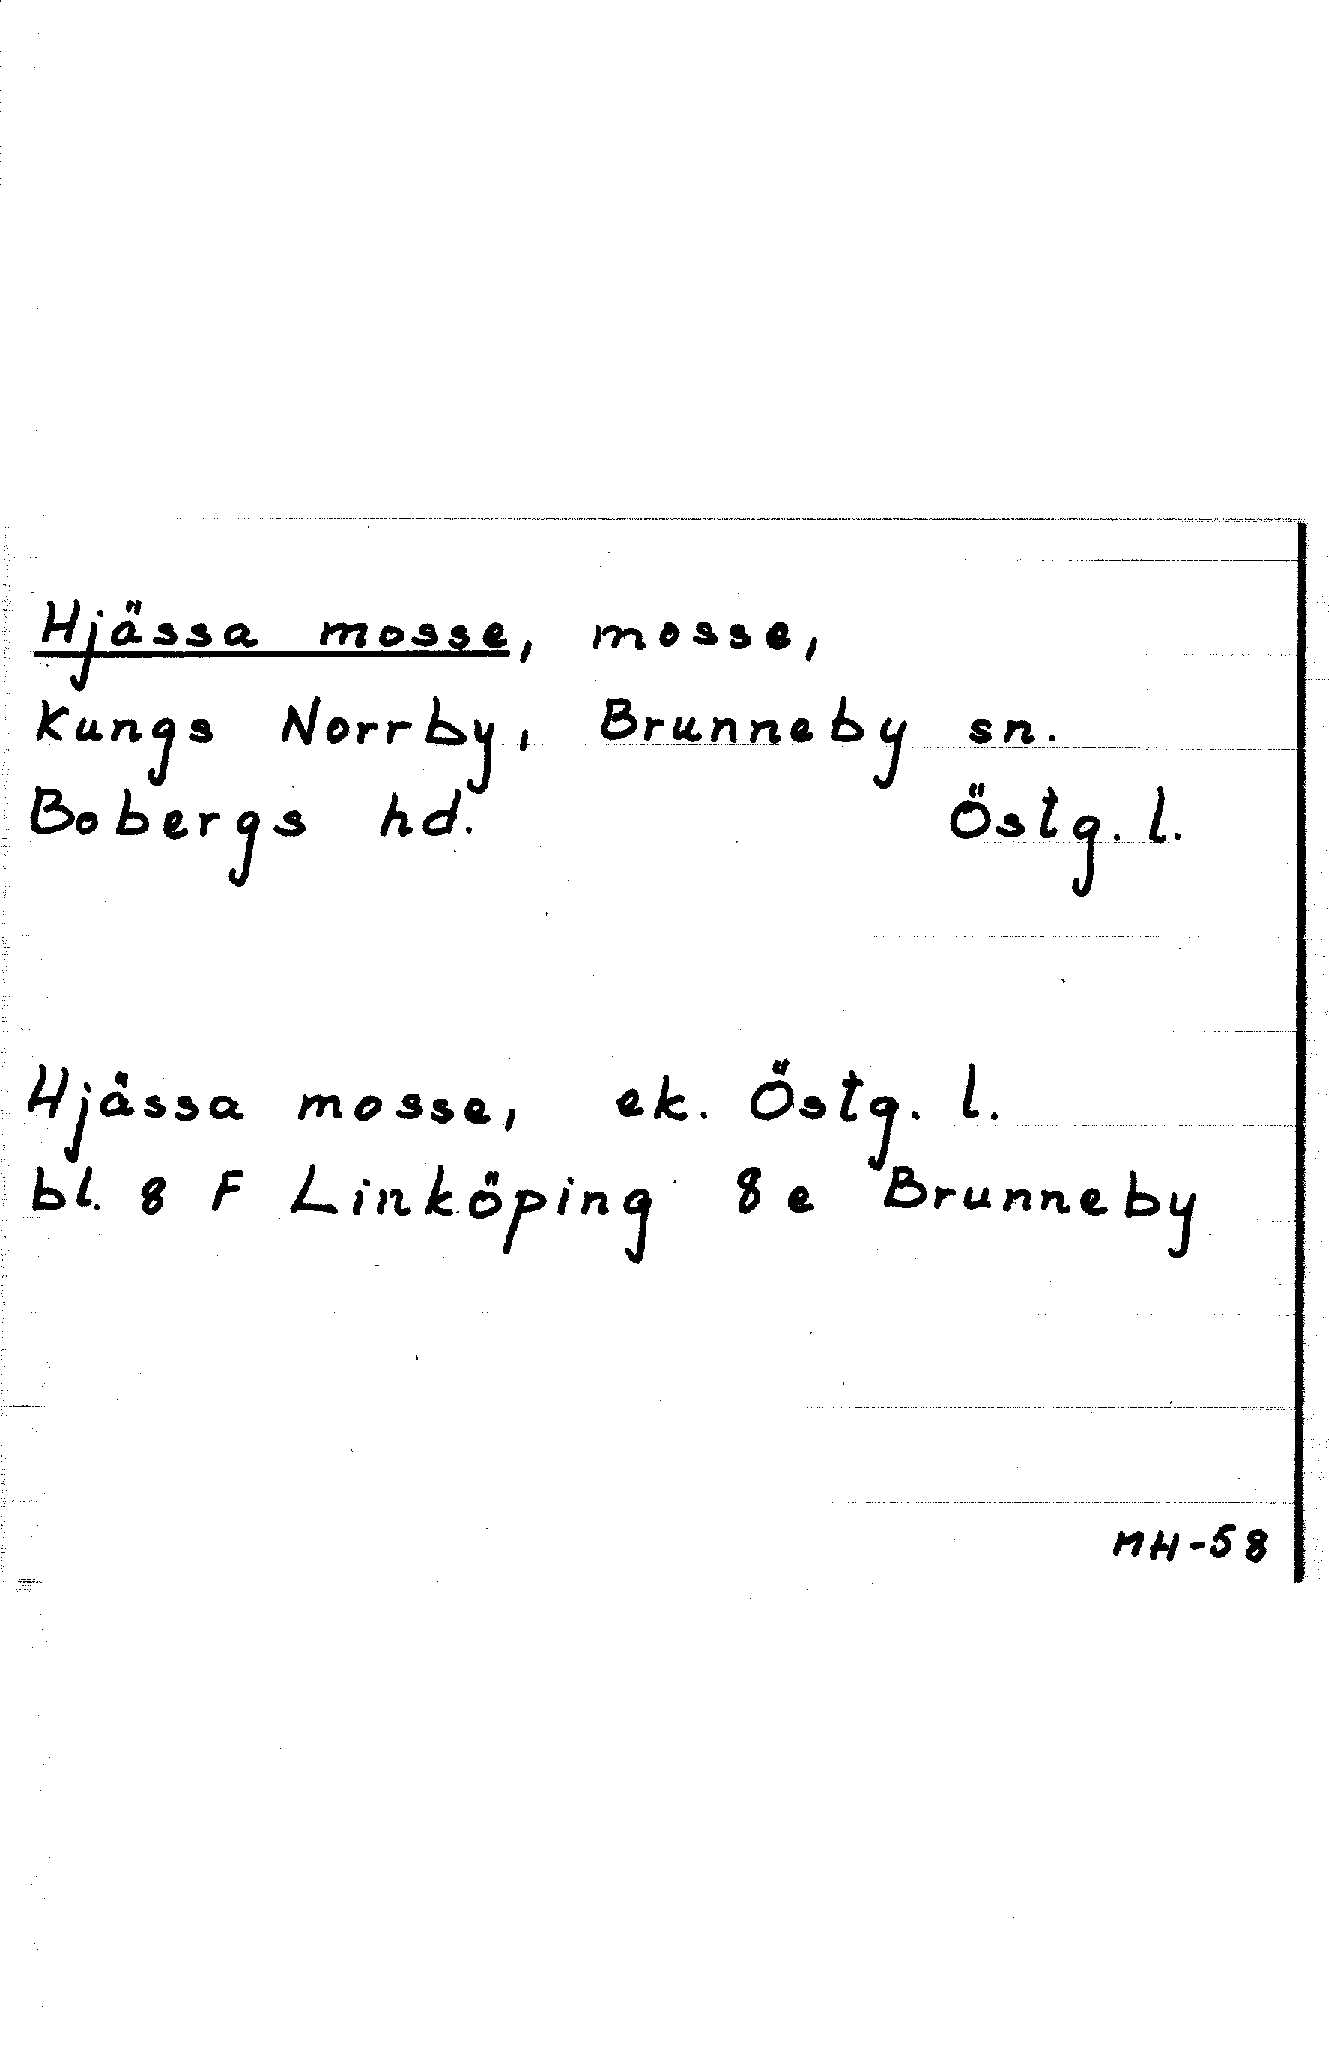 Hjässa mosse, mosse,
Kungs Norrby, Brunneby sn.
Bobergs hd. Östg. l.
Hjässa mosse, ek. Östg. l.
bl. 8 F Linköping 8 e Brunneby
MH-58